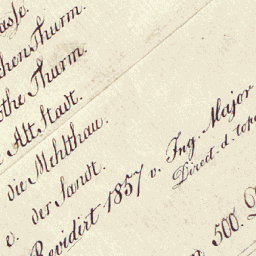 asse.
chen Thurm.
othe Thurm.
Alt Stadt.
die Mehlthau.
e. der Sandt.
Revidirt 1857 v. Ing. Major
Direct. d. topo
500.